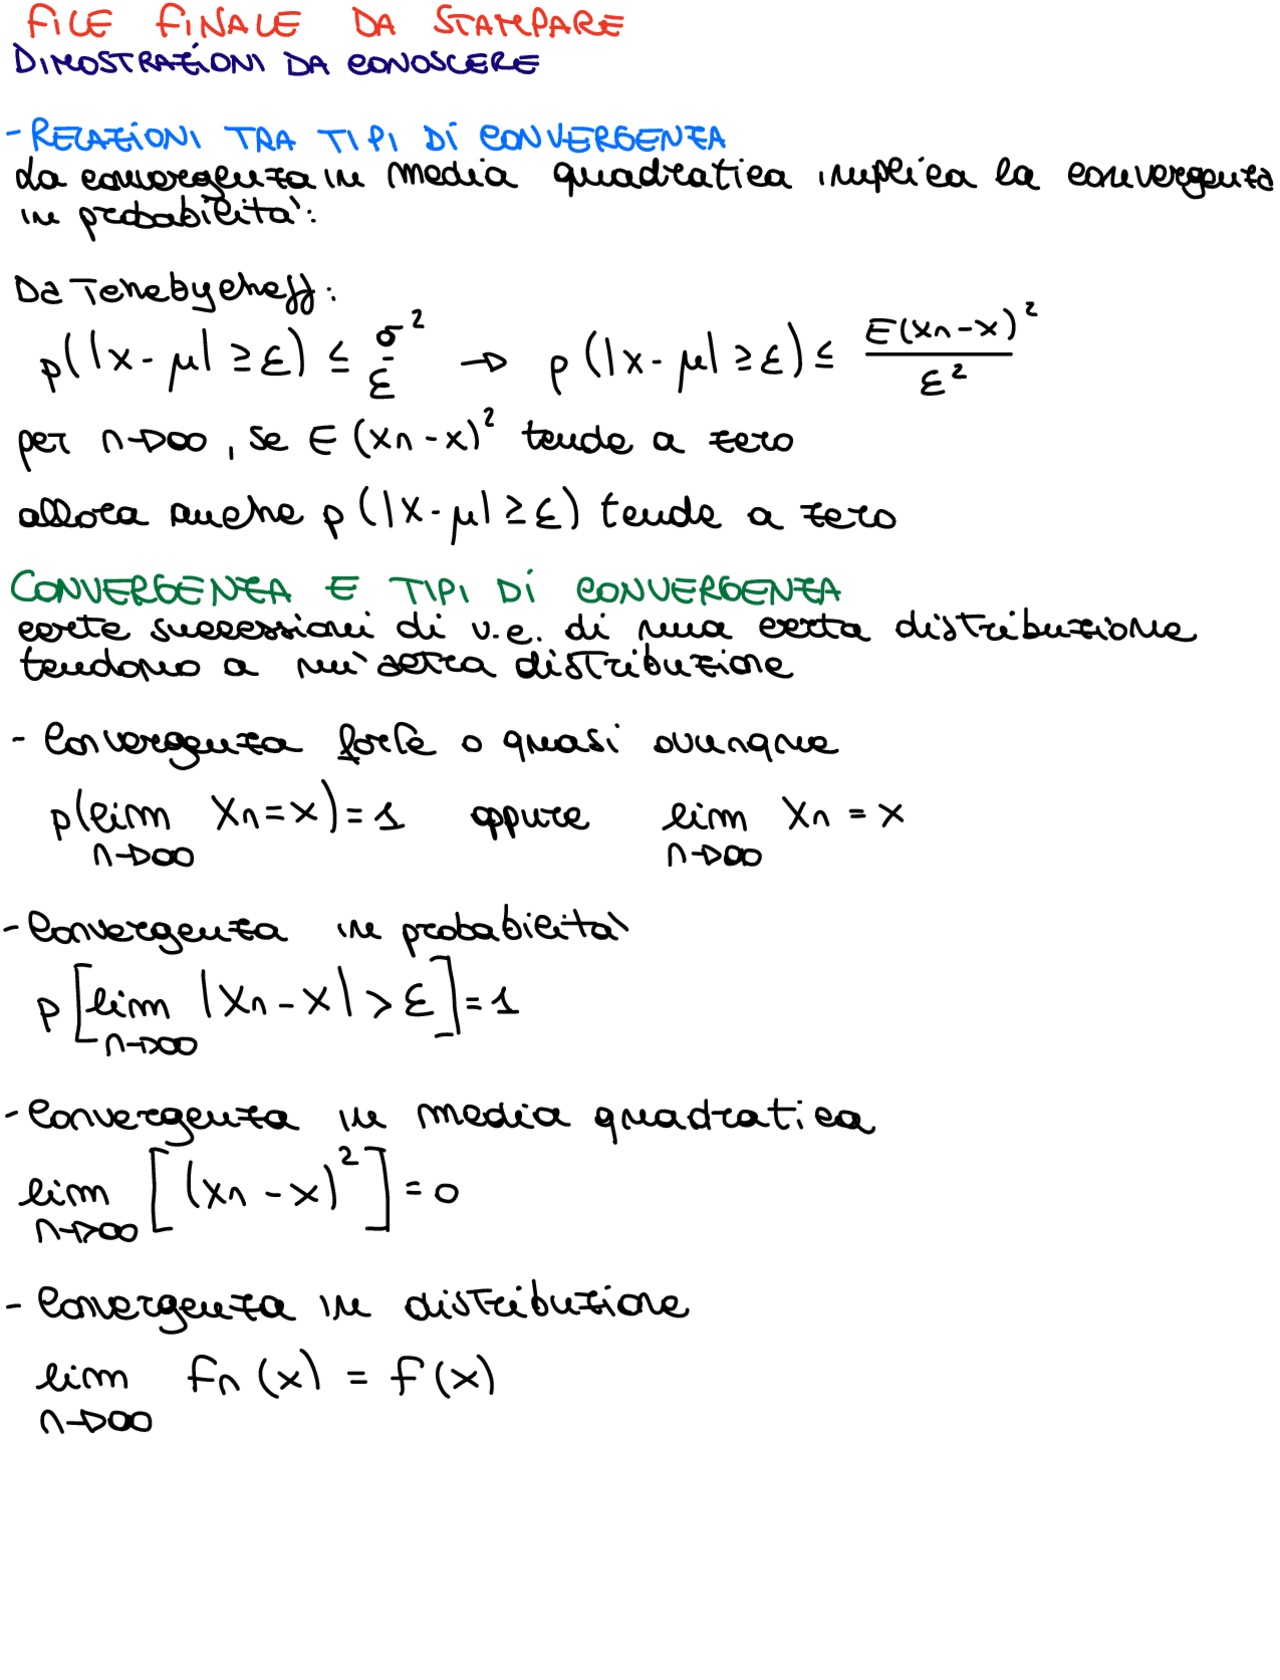 FILE FINALE DA STAMPARE
DIMOSTRAZIONI DA CONOSCERE
- RELAZIONI TRA TIPI DI CONVERGENZA
La convergenza in media quadratica implica la convergenza
in probabilità:
Da Tchebycheff:
p(|x-μ| ≥ ε) ≤ σ²/ε → p(|x-μ| ≥ ε) ≤ E(xn-x)²/ε²
per n→∞, se E(xn-x)² tende a zero
allora anche p(|x-μ| ≥ ε) tende a zero
CONVERGENZA E TIPI DI CONVERGENZA
certe successioni di v.c. di una certa distribuzione
tendono a un'altra distribuzione
- Convergenza forte o quasi ovunque
p(lim n→∞ Xn = x) = 1 oppure lim n→∞ Xn = x
- Convergenza in probabilità
p[lim n→∞ |Xn - x| > ε] = 1
- Convergenza in media quadratica
lim n→∞ [(xn - x)²] = 0
- Convergenza in distribuzione
lim n→∞ Fn(x) = F(x)